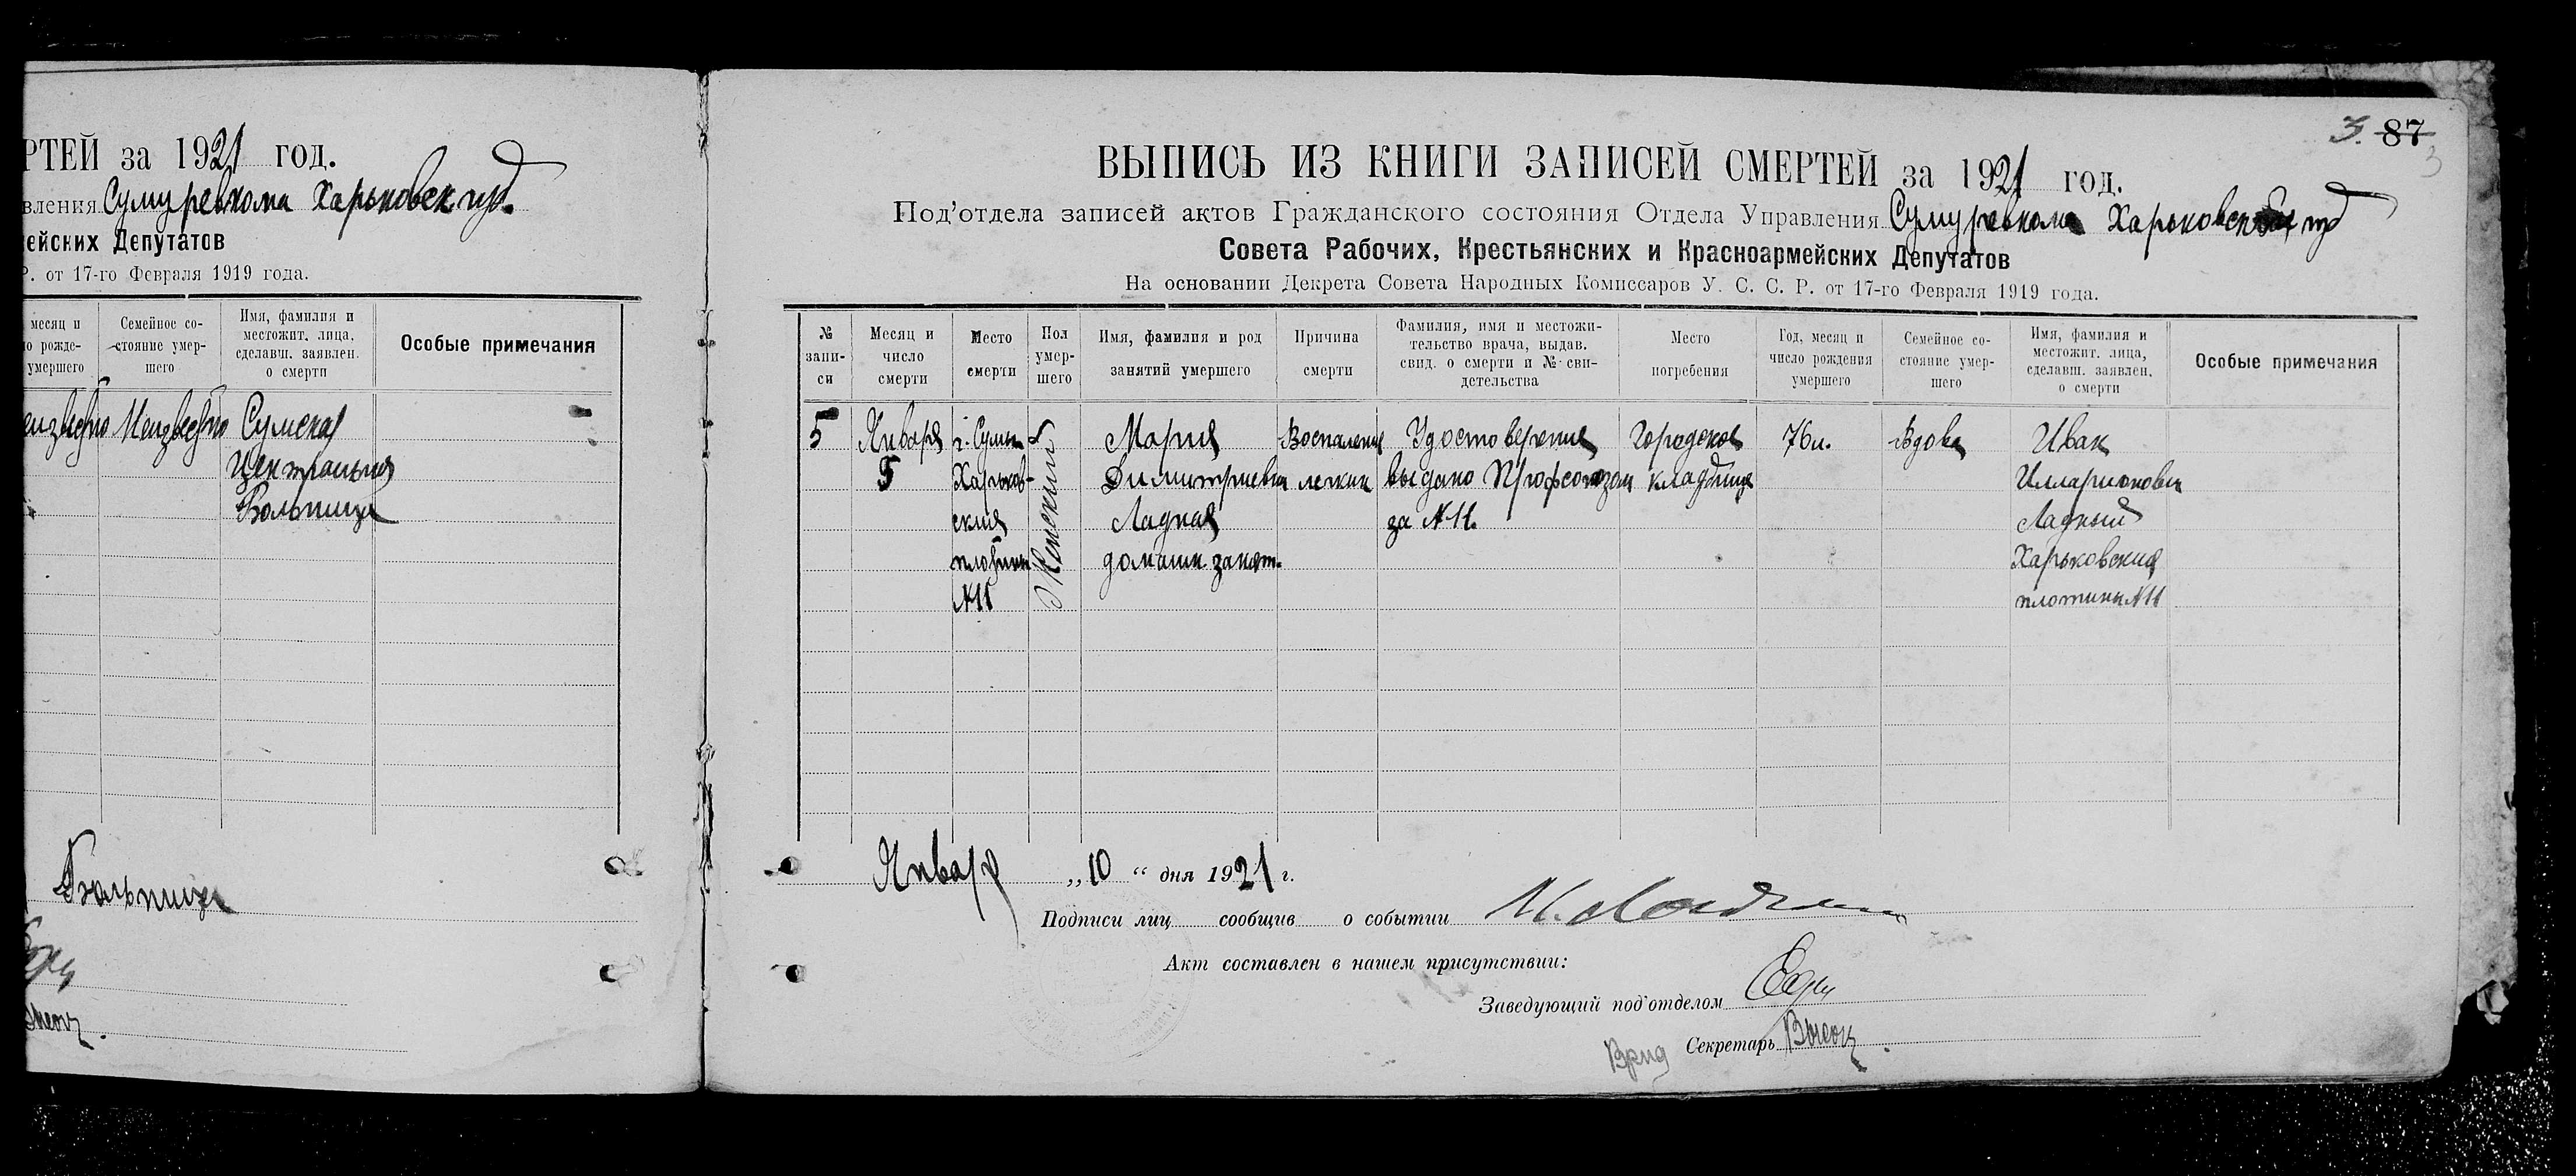 РТЕЙ за 1921 год.
вления Сумуревкома Харьковск губ.
ейских Депутатов
Р. от 17-го Февраля 1919 года.
месяц и
о рожде-
умершего
Семейное со-
стояние умер-
шего
Имя, фамилия и
местожит. лица,
сделавш. заявлен.
о смерти
Особые примечания
Неизвестно
Сумская
Центральная
Больница
Больница
3. 87
3
ВЫПИСЬ ИЗ КНИГИ ЗАПИСЕЙ СМЕРТЕЙ за 1921 год.
Под'отдела записей актов Гражданского состояния Отдела Управления Сумуревкома Харьковской губ
Совета Рабочих, Крестьянских и Красноармейских Депутатов
На основании Декрета Совета Народных Комиссаров У. С. С. Р. от 17-го Февраля 1919 года.
№
запи-
си
Месяц и
число
смерти
Место
смерти
Пол
умер-
шего
Имя, фамилия и род
занятий умершего
Причина
смерти
Фамилия, имя и местожи-
тельство врача, выдав.
свид. о смерти и № сви-
детельства
Место
погребения
Год, месяц и
число рождения
умершего
Семейное со-
стояние умер-
шего
Имя, фамилия и
местожит. лица,
сделавш. заявлен,
о смерти
Особые примечания
5
Января
5
г. Сумы
Харьков-
ския
плотины
№11
Женский
Мария
Димитриевна
Ладная
домашн. занят.
Воспаление
легких
Удостоверение
выдано Профсоюзом
за №11.
Городское
кладбище
76 л.
Вдова
Иван
Илларионович
Ладный
Харьковския
плотины №11
Январь „10 “ дня 1921 г.
Подписи лиц сообщив о событии И. Ладный
Акт составлен в нашем присутствии:
Заведующий под'отделом
Врид Секретарь Высоц